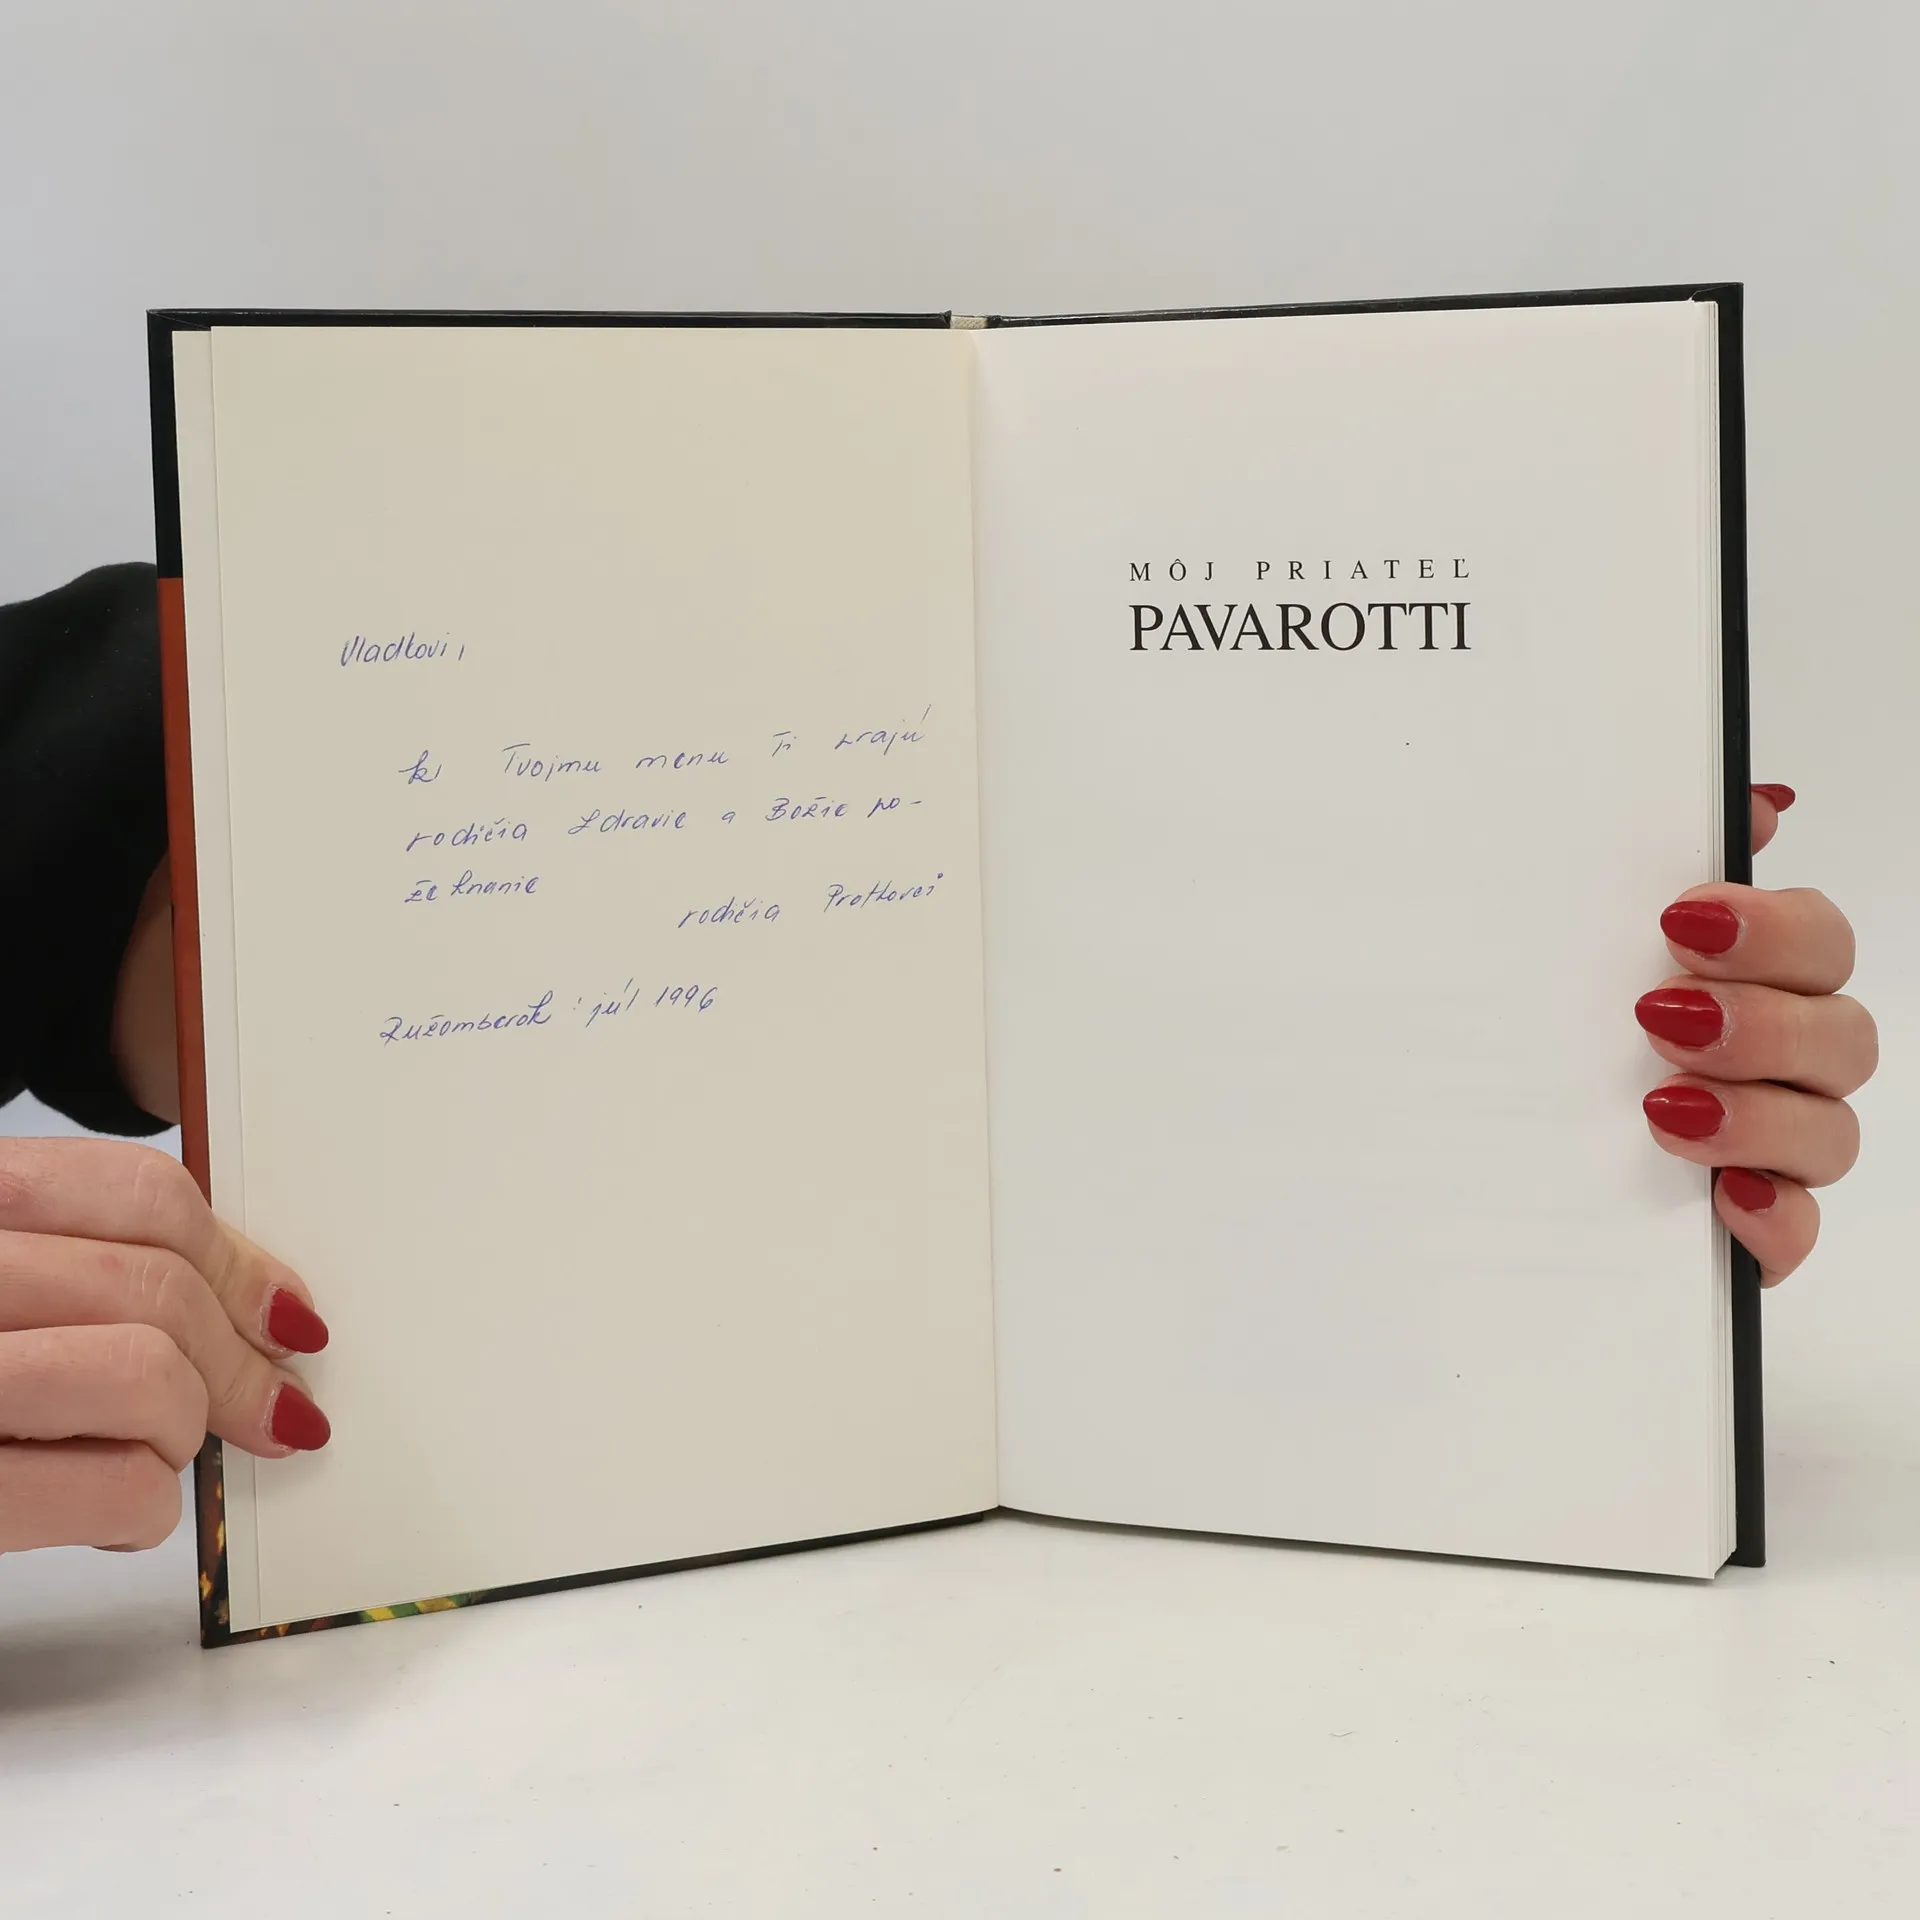 Vladkovi,
k Tvojmu menu Ti prajú
rodičia Zdravie a Božie po-
žehnanie
rodičia
Ružomberok : júl 1996
MÔJ PRIATEĽ
PAVAROTTI